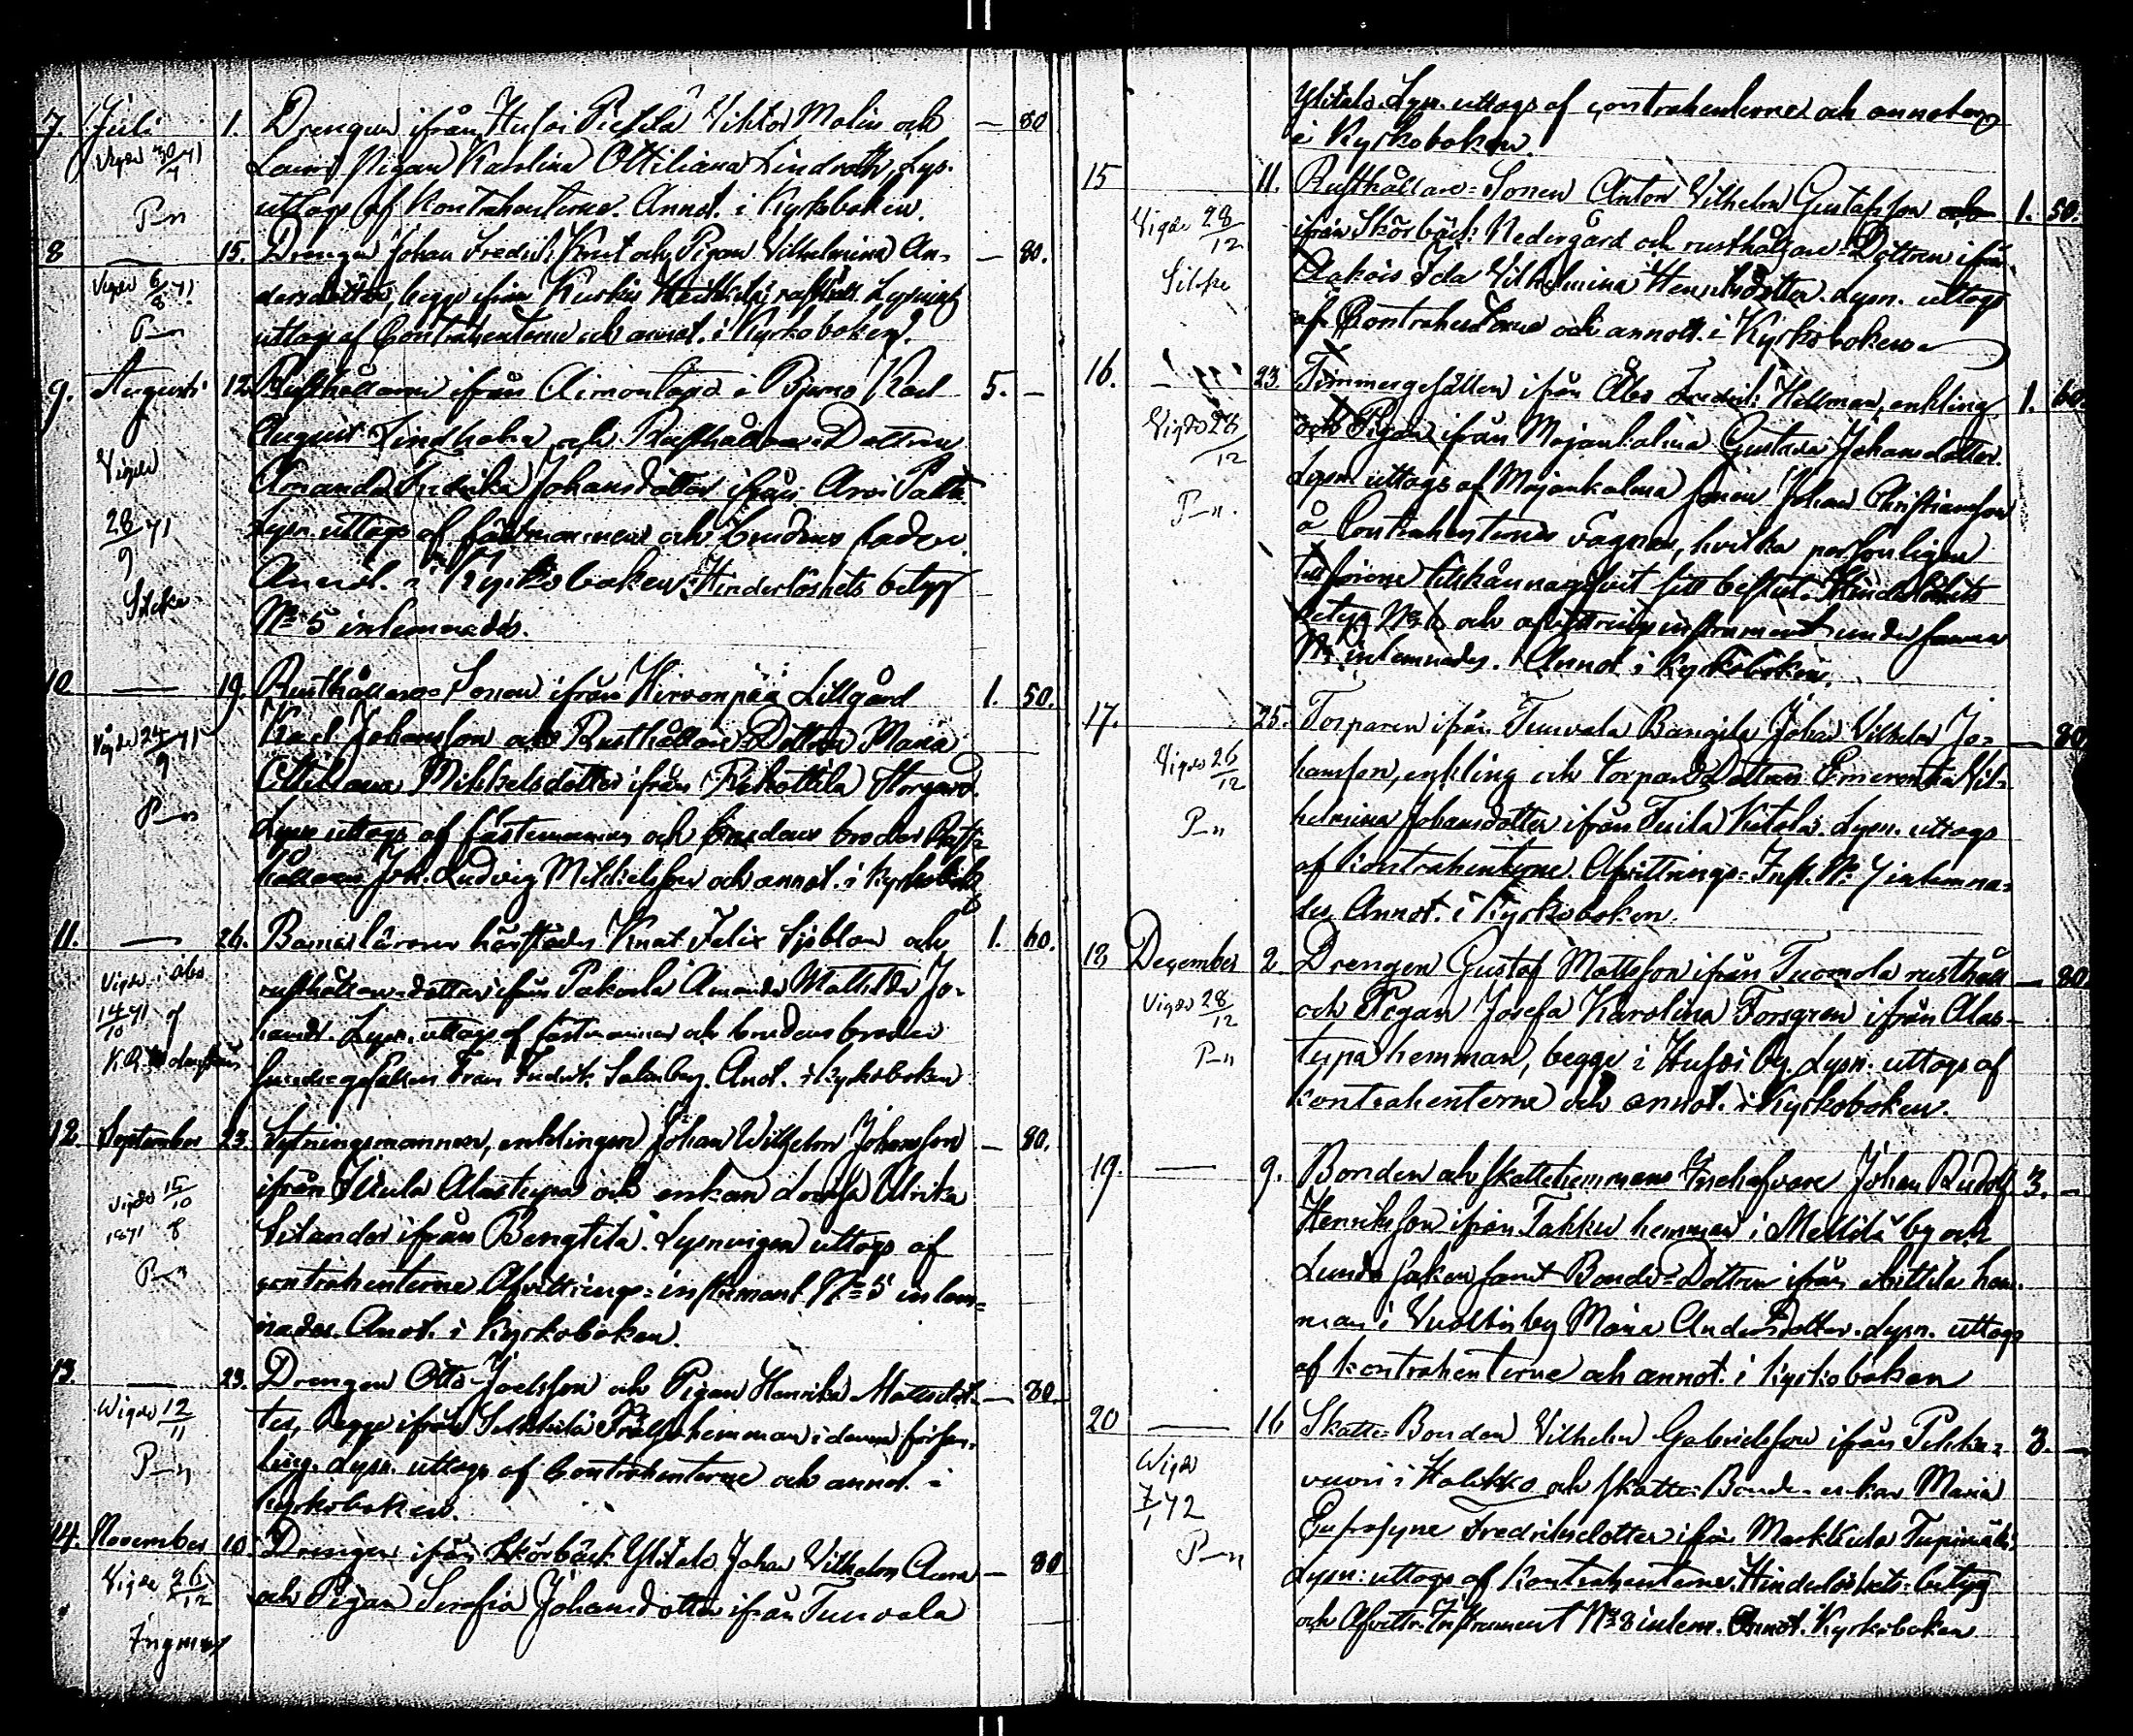 7. Juli 1. Drengen ifrån Hufoi Pietilä Viktor Molin och — 80
Vigde 30/7 71 Pigan Karolina Ottiliana Lindroth, Lys.
P—n uttogs af Kontrahenterne. Annot. i Kyrkoboken.
8 — 15. Drengen Johan Fredrik Knut och Pigan Vilhelmina An- — 80.
Vigde 6/8 71 dersdotter, begge ifrån Kurkis Lysning
P—n uttogs af Contrahenterne och annot. i Kyrkoboken.
9. Augusti 12. Rusthållaren ifrån i Bjerno Karl 5. —
August Lindholm och Rusthållare Dottren
Vigde Amanda Fredrika Johansdotter ifrån
28/9 71 Lysn. uttogs af fästmannen och brudens fader
Silcke Annot. i Kyrkoboken. Hinderlöshets betyg
No 5 inlemnades.
10 — 19. Rusthållare-Sonen ifrån Hirvonpää Lillgård 1. 50.
Vigde 24/9 71 Karl Johansson och Rusthållare Dottren Maria
Ottiliana Mikkelsdotter ifrån Storgård.
P—n Lysn uttogs af fästemannen och brudens broder Rust-
hållaren Joh. Ludvig Mikkelsson och annot. i Kyrkobok
11. — 26. Barnaläraren härstädes Knut Felix Sjöblom och 1. 60.
Vigde i Åbo rusthållare-dotter ifrån Pakola Amanda Matilda Jo-
14/10 71 af hansd. Lysn. uttogs af fästmannen och brudens broder
Frans Fredrik Salmberg. Anot. i Kyrkoboken
12. September 23. Sytningsmannen, enklingen Johan Wilhelm Johansson — 80.
Vigde 15/10 ifrån Alastupa och enkan Lovisa Ulrika
1871 8 Silander ifrån Bengtilä. Lysningen uttogs af
P—n contrahenterne Afvittrings-instrument No 5 inlem-
nades. Anot. i Kyrkoboken.
13. — 23. Drengen Otto Joelsson och Pigan Henrika Mattsdot- — 80.
Wigde 12/11 ter, begge ifrån Frälsehemman i denna försam-
P—n ling. Lysn. uttogs af Contrahenterne och annot. i
Kyrkoboken.
14. November 10. Drengen ifrån Skörbäck Ylitalo Johan Vilhelm — 80
Vigde 26/12 och Pigan Serafia Johansdotter ifrån Tuuvala
Ylitalo. Lysn. uttogs af contrahenterne och annoteras
i Kyrkoboken.
15 11. Rusthållare-Sonen Anton Vilhelm Gustafsson och 1. 50.
Vigde 28/12 ifrån Skörbäck Nedergård och rusthållare-Dottren ifrån
Ida Vilhelmina Henriksdotter. Lysn. uttogs
af Contrahenterne och annott. i Kyrkoboken
16. — 23 Timmergesällen ifrån Åbo Fredrik Hellman, enkling 1. 60.
Vigde 28/12 och Pigan ifrån Mojankalma Gustava Johansdotter.
Lysn. uttogs af Mojankalma sonen Johan Christiansson
P—n. å Contrahenternes vagnar, hvilka personligen
tillförene tillkännagifvit sitt beslut. Hinderlöshets
betyg No 6 och afvittrings instrument under samma
No inlemnades. Annot. i Kyrkoboken.
17. 25. Torparen ifrån Tuuvala Johan Vilhelm Jo- — 80
Vigde 26/12 hansson, enkling och torpare Dottren Emerentia Vil-
P—n helmina Johansdotter ifrån Tuila Ketola. Lysn. uttogs
af Contrahenterne. Afvittrings-Inst. No 7 inlemna-
des. Annot. i Kyrkoboken.
18 December 2 Drengen Gustaf Mattsson ifrån Tuomola rusthåll — 80
Vigde 28/12 och Pigan Josefa Karolina Forsgren ifrån Alas-
P—n tupa hemman, begge i Hufoi by. Lysn. uttogs af
kontrahenterne och annot. i Kyrkoboken.
19. — 9. Bonden och skattehemmans Innehafvare Johan Rudolf 3. —
Henriksson ifrån Takku hemman i Mellilä by och
Lundo soken samt Bonde-Dottren ifrån hem-
man i by Maria Andersdotter. Lysn. uttogs
af kontrahenterne och annot. i Kyrkoboken
20 — 16 Skatte-Bonden Vilhelm Gabrielsson ifrån 3. —
Wigde vuori i Halikko och skatte-Bonde-enkan Maria
7/1 72 Eufrosyne Fredriksdotter ifrån Markkula
P—n Lysn. uttogs af Kontrahenterne. Hinderlöshets-betyg
och Afvittr. Instrument No 8 inlem. Annot. Kyrkoboken